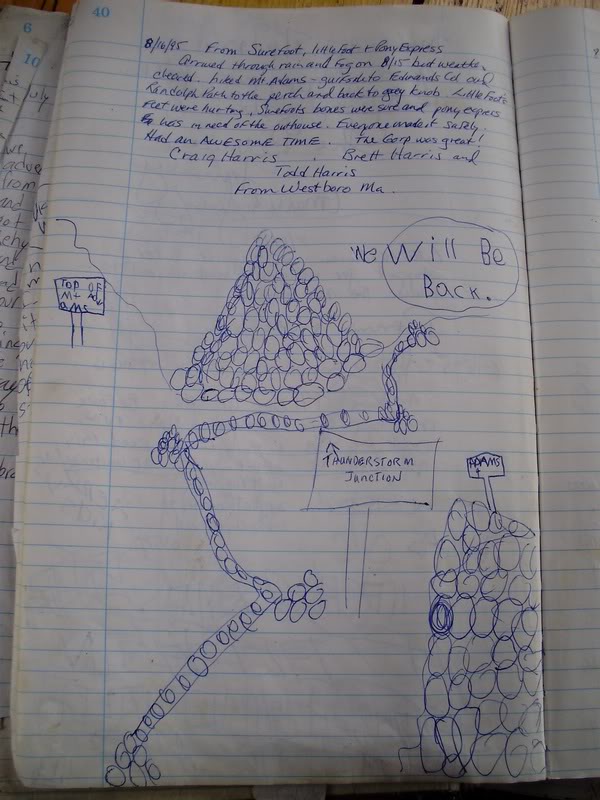 40
8/16/95 From Surefoot, littleFoot & Pony Express
Arrived through rain and Fog on 8/15 bad weather
cleared. hiked Mt Adams - gulfside to Edmands Col and
Randolph Path to the perch and back to grey knob. LittleFoot's
Feet were hurting, Surefoots bones were sore and pony express
was in need of the outhouse. Everyone made it safely
Had an AWESOME TIME. The Gorp was great!
Craig Harris . Brett Harris and
Todd Harris
From Westboro Ma.
We Will Be
Back.
Top OF
Mt Ad
ams
THUNDERSTORM
JUNCTION
ADAMS
6
10